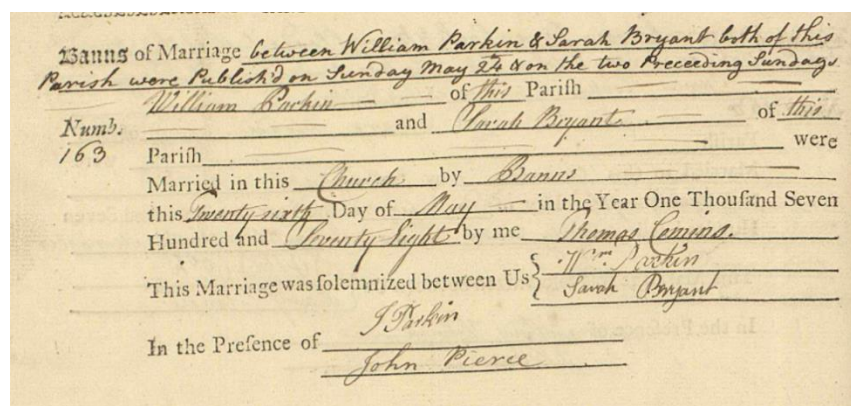 Banns of Marriage between William Parkin & Sarah Bryant both of this
Parish were Publish'd on Sunday May 24 & on the two Preceeding Sundays
William Parkin of this Parish
Numb. and Sarah Bryant of this
163 Parish were
Married in this Church by Banns
this Twenty sixth Day of May in the Year One Thousand Seven
Hundred and Seventy Eight by me Thomas Cemino.
Wm. Parkin
This Marriage was solemnized between Us { Sarah Bryant
J Parkin
In the Presence of
John Pierce